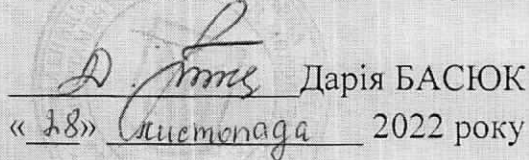 Дарія БАСЮК
«28» листопада 2022 року